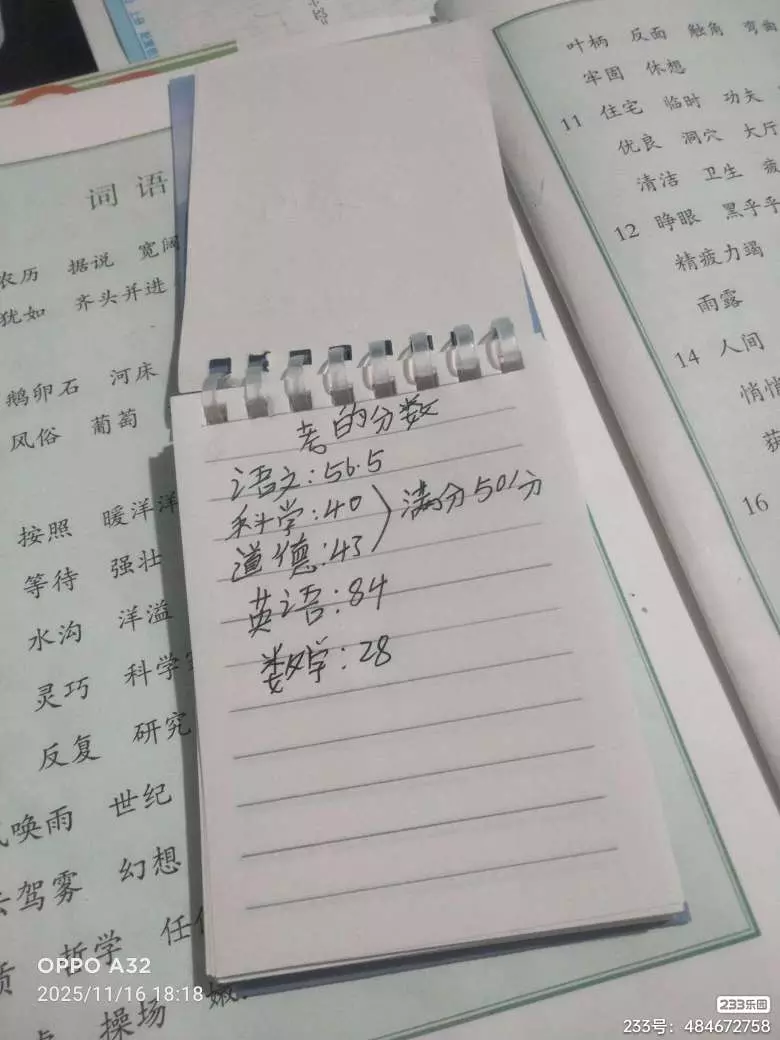 词语
农历 据说 宽阔
犹如 齐头并进
鹅卵石 河床
风俗 葡萄
按照 暖洋洋
等待 强壮
水沟 洋溢
灵巧 科学
反复 研究
唤雨 世纪
驾雾 幻想
哲学
操场
考的分数
语文:56.5
科学:40
道德:43
满分50分
英语:84
数学:28
叶柄 反面 触角 弯曲
牢固 休想
11 住宅 临时 功夫
优良 洞穴 大厅
清洁 卫生 疲
12 睁眼 黑乎乎
精疲力竭
雨露
14 人间
悄悄
16
OPPO A32
2025/11/16 18:18
233乐园
233号:484672758